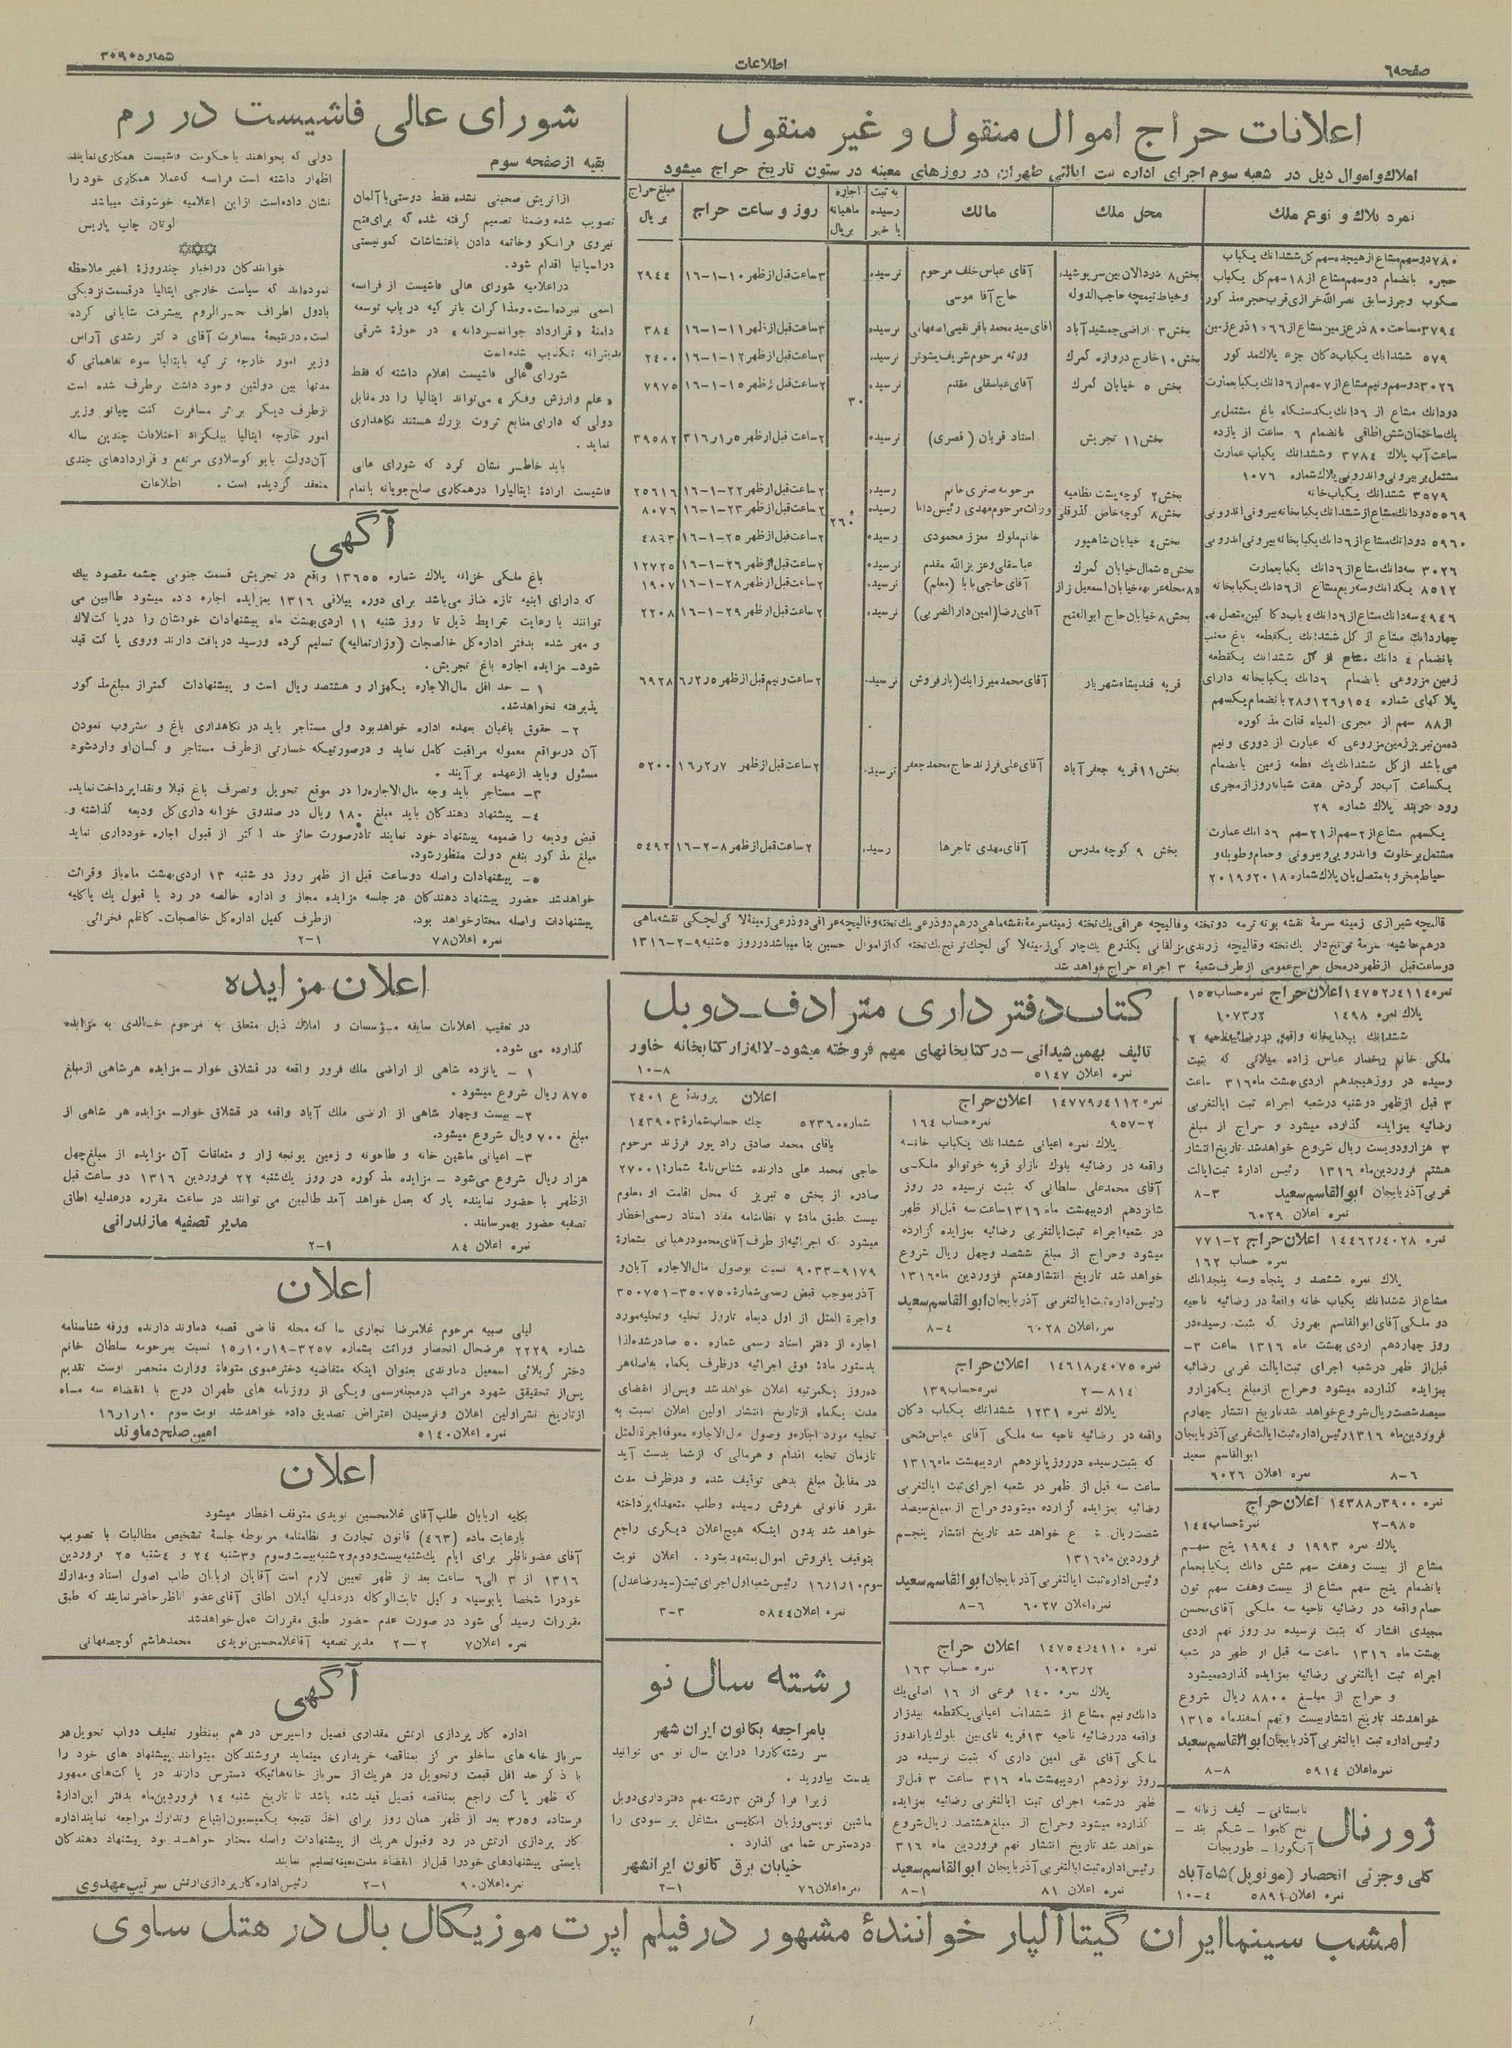 صفحه٦٩
اطلاعات
شماره ۳۰۹۰
اعلانات حراج اموال منقول و غیر منقول
املاک و اموال ذیل در شعبه سوم اجرای اداره ثبت ایالتی طهران در روزهای معینه در ستون تاریخ حراج میشود
نمره پلاک و نوع ملک
محل ملک
مالک
به ثبت رسیده یا خیر
اجاره ماهیانه بریال
روز و ساعت حراج
مبلغ حراج بریال
آقای عباس خلف مرحوم حاج آقا موسی
نرسیده
۳ ساعت قبل از ظهر ۱۰-۱-۱۶
۲۹۴۴
بخش ۳ اراضی جمشید آباد
آقای سید محمد باقر نفیسی اصفهانی
نرسیده
۳ ساعت قبل از ظهر ۱۱-۱-۱۶
۳۸۴
۵۷۹ ششدانك یکباب دکان جزء پلاک مذکور
بخش ۱۰ خارج دروازه گمرک
نرسیده
۳ ساعت قبل از ظهر ۱۲-۱-۱۶
۲۴۰۰
بخش ۵ خیابان گمرک
آقای عباسقلی مقدم
نرسیده
۳۰
۲ ساعت قبل از ظهر ۱۵-۱-۱۶
۷۹۷۵
بخش ۱۱ تجریش
استاد قربان (قصری)
نرسیده
۳۹۵۸۲
۳۵۷۹ ششدانك یکبابخانه
بخش ۲ کوچه پشت نظامیه
مرحومه صغری خانم
رسیده
۲ ساعت قبل از ظهر ۲۲-۱-۱۶
۲۵۶۱۶
رسیده
۲ ساعت قبل از ظهر ۲۳-۱-۱۶
۸۰۷۶
بخش ٤ خیابان شاهپور
خانم ملوک معزز محمودی
نرسیده
۲ ساعت قبل از ظهر ۲۵-۱-۱۶
۴۸۶۳
۳۰۲۶ سه دانك مشاع از ٦ دانك یکبا بعمارت
بخش ۵ شمال خیابان گمرک
عباسقلی و عزیزالله مقدم
نرسیده
۲ ساعت قبل از ظهر ۲۶-۱-۱۶
۱۲۷۲۵
آقای حاجی بابا (معلم)
نرسیده
۲ ساعت قبل از ظهر ۲۸-۱-۱۶
۱۹۰۷
بخش ۸ خیابان حاج ابوالفتح
آقای رضا (امین دارالضربی)
نرسیده
۲ ساعت قبل از ظهر ۲۹-۱-۱۶
۲۲۰۸
نرسیده
۶۹۲۸
بخش ۱۱ قریه جعفر آباد
آقای علی فرزند حاج محمد جعفر
نرسیده
۲ ساعت قبل از ظهر ۷ر۲ر۱۶
۵۲۰۰
بخش ۹ کوچه مدرس
آقای مهدی تاجرها
رسیده
۲ ساعت قبل از ظهر ۸-۲-۱۶
۵۴۹۲
دو ساعت قبل از ظهر در محل حراج عمومی از طرف شعبهٔ ۳ اجراء حراج خواهد شد
شورای عالی فاشیست در رم
بقیه از صفحه سوم
از اتریش صحبتی نشده فقط دوستی با آلمان
تصویب شده و ضمنا تصمیم گرفته شده که برای فتح
نیروی فرانکو و خاتمه دادن باغتشاشات کمونیستی
در اسپانیا اقدام شود.
در اعلامیه شورای عالی فاشیست از فرانسه
اسمی نبرده است. و مذاکرات با ترکیه در باب توسعه
دامنهٔ «قرارداد جوانمردانه» در حوزهٔ شرقی
مدیترانه تکذیب شده است
شورای عالی فاشیست اعلام داشته که فقط
«علم و ارزش و فکر» می‌تواند ایتالیا را در مقابل
دولی که دارای منابع ثروت بزرک هستند نگاهداری
نماید.
باید خاطر نشان کرد که شورای عالی
فاشیست ارادهٔ ایتالیا را در همکاری صلح جویانه با تمام
دولی که بخواهند با حکومت فاشیست همکاری نمایند
اظهار داشته است فرانسه که عملا همکاری خود را
نشان داده است از این اعلامیه خوشوقت میباشد
لوتان چاپ پاریس
خوانندگان در اخبار چند روزهٔ اخیر ملاحظه
نموده‌اند که سیاست خارجی ایتالیا در قسمت نزدیکی
با دول اطراف بحرالروم پیشرفت شایانی کرده
است. در نتیجهٔ مسافرت آقای دکتر رشدی آراس
وزیر امور خارجه ترکیه بایتالیا سوء تفاهماتی که
مدتها بین دولتین وجود داشت برطرف شده است
از طرف دیگر بر اثر مسافرت کنت چیانو وزیر
امور خارجه ایتالیا ببلگراد اختلافات چندین ساله
آن دولت با یوگوسلاوی مرتفع و قراردادهای چندی
منعقد گردیده است. اطلاعات
آگهی
باغ ملکی خزانه پلاک شماره ۱۳۶۵۵ واقع در تجریش قسمت جنوبی چشمه مقصود بیک
که دارای ابنیه تازه ساز می‌باشد برای دوره ییلاقی ۱۳۱۶ بمزایده اجاره داده میشود طالبین می
توانند با رعایت شرایط ذیل تا روز شنبه ۱۱ اردی بهشت ماه پیشنهادات خودشان را در پاکت لاک
و مهر شده بدفتر اداره کل خالصجات (وزارت مالیه) تسلیم کرده و رسید دریافت دارند و روی پاکت قید
شود ـ مزایده اجاره باغ تجریش.
۱ – حد اقل مال الاجاره یکهزار و هشتصد ریال است و پیشنهادات کمتر از مبلغ مذکور
پذیرفته نخواهد شد.
۲ – حقوق باغبان بعهده اداره خواهد بود ولی مستاجر باید در نگاهداری باغ و مشروب نمودن
آن در مواقع معموله مراقبت کامل نماید و در صورتیکه خسارتی از طرف مستاجر و کسان او وارد شود
مسئول و باید از عهده برآیند.
۳ – مستاجر باید وجه مال الاجاره را در موقع تحویل و تصرف باغ قبلا و نقدا پرداخت نماید.
٤ – پیشنهاد دهندکان باید مبلغ ۱۸۰ ریال در صندوق خزانه داری کل ودیعه گذاشته و
قبض ودیعه را ضمیمه پیشنهاد خود نمایند تا در صورت حائز حد اکثر از قبول اجاره خودداری نماید
مبلغ مذکور بنفع دولت منظور شود.
۵ – پیشنهادات واصله دو ساعت قبل از ظهر روز دو شنبه ۱۳ اردی بهشت ماه باز و قرائت
خواهد شد حضور پیشنهاد دهندکان در جلسه مزایده مجاز و اداره خالصه در رد یا قبول یک یا کلیه
پیشنهادات واصله مختار خواهد بود. از طرف کفیل اداره کل خالصجات ـ کاظم فخرائی
نمره اعلان ۷۸ ۱–۲
اعلان مزایده
در تعقیب اعلانات سابقه مؤسسات و املاک ذیل متعلق به مرحوم خالدی به مزایده
گذارده می شود.
۱ – پانزده شاهی از اراضی ملک فرور واقعه در قشلاق خوار ـ مزایده هر شاهی از مبلغ
۸۷۵ ریال شروع میشود.
۲ – بیست و چهار شاهی از اراضی ملک آباد واقعه در قشلاق خوار ـ مزایده هر شاهی از
مبلغ ۷۰۰ ریال شروع میشود.
۳ – اعیانی ماشین خانه و طاحونه و زمین یونجه زار و متعلقات آن مزایده از مبلغ چهل
هزار ریال شروع می‌شود – مزایده مذکوره در روز یک شنبه ۲۲ فروردین ۱۳۱۶ دو ساعت قبل
از ظهر با حضور نماینده پارکه بعمل خواهد آمد طالبین می توانند در ساعت مقرره در عدلیه اطاق
تصفیه حضور بهمرسانند. مدیر تصفیه مازندرانی
نمره اعلان ۸٤ ۱–۲
اعلان
لیلی صبیه مرحوم غلامرضا نجاری ساکنه محله قاضی قصبه دماوند دارنده ورقه شناسنامه
شماره ۲۲۲۹ عرضحال انحصار وراثت بشماره ۳۲۵۷–۱۹ر۱۰ر۱۵ نسبت بمرحومه سلطان خانم
دختر کربلائی اسمعیل دماوندی بعنوان اینکه متقاضیه دختر عموی متوفاة و وارث منحصر اوست تقدیم
پس از تحقیق شهود مراتب در مجله رسمی و یکی از روزنامه های طهران درج با انقضاء سه ماه
از تاریخ نشر اولین اعلان و نرسیدن اعتراض تصدیق داده خواهد شد نوبت سوم ۱۰ر۱ر۱۶
نمره اعلان ۵۱٤۰ امین صلح دماوند
اعلان
بکلیه اربابان طلب آقای غلامحسین نویدی متوقف اخطار میشود
بارعایت ماده (۴۶۳) قانون تجارت و نظامنامه مربوطه جلسهٔ تشخیص مطالبات با تصویب
آقای عضو ناظر برای ایام یکشنبه بیست و دوم و ۲شنبه بیست و سوم و ۳شنبه ۲٤ و ٤شنبه ۲۵ فروردین
۱۳۱۶ از ۳ الی ۶ ساعت بعد از ظهر تعیین لازم است آقایان اربابان طلب اصول اسناد و مدارک
خود را شخصا یا بوسیله وکیل ثابت الوکاله در عدلیه گیلان اطاق آقای عضو ناظر حاضر نمایند که طبق
مقررات رسیدگی شود در صورت عدم حضور طبق مقررات عمل خواهد شد
نمره اعلان ۷ ۲–۲ مدیر تصفیه آقا غلامحسین نویدی محمدهاشم کوچصفهانی
آگهی
اداره کار پردازی ارتش مقداری فصیل و اسپرس در هم بمنظور تعلیف دواب تحویل هر
سرباز خانه های ساخلو مرکز بمناقصه خریداری مینماید فروشندگان میتوانند پیشنهاد های خود را
با ذکر حد اقل قیمت و تحویل در هر یک از سرباز خانه‌هائیکه دسترس دارند در پاکت‌های ممهور
که ظهر پاکت راجع بمناقصه فصیل قید شده باشد تا تاریخ شنبه ۱٤ فروردین ماه بدفتر این ادارهٔ
فرستاده و ۳٫۵ بعد از ظهر همان روز برای اخذ نتیجه بکمیسیون ابتیاع و تدارک مراجعه نمایند اداره
کار پردازی ارتش در رد و قبول هر یک از پیشنهادات واصله مختار خواهد بود پیشنهاد دهندگان
بایستی پیشنهادهای خود را قبل از انقضاء مدت معینه تسلیم نمایند
نمره اعلان ۹۰ ۱–۲ رئیس اداره کار پردازی ارتش سرتیپ مهدوی
کتاب دفتر داری مترادف ـ دوبل
تالیف بهمن شیدانی – در کتابخانهای مهم فروخته میشود ـ لاله زار کتابخانه خاور
نمره اعلان ۵۱٤۷ ۸–۱۰
اعلان پرونده ع ۲٤۰۱
شماره ۵۲۳۶۰ چک حساب شمارهٔ ۱٤۳۹۰۳
بآقای محمد صادق راد پور فرزند مرحوم
حاجی محمد علی دارنده شناسنامهٔ شمارهٔ ۲۷۰۰۱
صادره از بخش ۵ تبریز که محل اقامت او معلوم
نیست طبق مادهٔ ۷ نظامنامه مفاد اسناد رسمی اخطار
میشود که اجرائیه از طرف آقای محمود رهبانی بشمارهٔ
۹۱۷۹–۹۰۳۳ نسبت بوصول مال الاجاره آبان و
آذر بموجب قبض رسمی شماره ۳۵۰۷۵۰–۳۵۰۷۵۱
و اجرة المثل از اول دیماه تاروز تخلیه و تخلیه مورد
اجاره از دفتر اسناد رسمی شماره ۵۰ صادر شده لذا
بدستور مادهٔ فوق اجرائیه در ظرف یکماه بفاصله هر
ده روز یکمرتبه اعلان خواهد شد و پس از انقضای
مدت یکماه از تاریخ انتشار اولین اعلان نسبت به
تخلیه مورد اجاره و وصول مال الاجاره معوقه اجرة المثل
تا زمان تخلیه اقدام و هر مالی که از شما بدست آید
در مقابل مبلغ بدهی توقیف شده و در ظرف مدت
مقرر قانونی فروش رسیده و طلب متعهدله پرداخته
خواهد شد بدون اینکه هیچ اعلان دیگری راجع
بتوقیف یا فروش اموال بمتعهد بشود. اعلان نوبت
سوم ۱۰ر۱ر۱۶ رئیس شعبه اول اجرای ثبت (سید رضا عدل)
نمره اعلان ۵۸٤٤ ۳–۳
رشته سال نو
بامراجعه بکانون ایران شهر
سر رشته کار را در این سال نو می توانید
بدست بیاورید.
زیرا فرا گرفتن ۳ رشته مهم دفترداری دوبل
ماشین نویسی و زبان انگلیسی مشاغل پر سودی را
در دسترس شما می گذارد.
خیابان برق کانون ایرانشهر
نمره اعلان ۷۶ ۱–۲
نمره ٤۱۱۲ر۱٤۷۷۹ اعلان حراج
۲–۹۵۷ نمره حساب ۱۶٤
پلاک نمره اعیانی ششدانک یکباب خانه
واقعه در رضائیه بلوک نازلو قریه خوتوالو ملکی
آقای محمد علی سلطانی که بثبت نرسیده در روز
شانزدهم اردیبهشت ماه ۱۳۱۶ ساعت سه قبل از ظهر
در شعبه اجراء ثبت ایالت غربی رضائیه بمزایده گزارده
میشود و حراج از مبلغ ششصد و چهل ریال شروع
خواهد شد تاریخ انتشار هفتم فروردین ماه ۱۳۱۶
رئیس اداره ثبت ایالت غربی آذربایجان ابوالقاسم سعید
نمره اعلان ۶۰۲۸ ٤–۸
نمره ٤۰۷۵ر۱٤۶۱۸ اعلان حراج
۸۱٤–۲ نمره حساب ۱۳۹
پلاک نمره ۱۲۳۱ ششدانک یکباب دکان
واقعه در رضائیه ناحیه سه ملکی آقای عباس فتحی
که بثبت رسیده در روز پانزدهم اردیبهشت ماه ۱۳۱۶
ساعت سه قبل از ظهر در شعبه اجرای ثبت ایالت غربی
رضائیه بمزایده گزارده میشود و حراج از مبلغ سیصد
شصت ریال شروع خواهد شد تاریخ انتشار پنجم
فروردین ماه ۱۳۱۶
رئیس اداره ثبت ایالت غربی آذربایجان ابوالقاسم سعید
نمره اعلان ۶۰۲۷ ۶–۸
نمره ٤۱۱۰ر۱٤۷۵٤ اعلان حراج
۲ر۱۰۹۳ نمره حساب ۱۶۳
پلاک نمره ۱٤۰ فرعی از ۱۶ اصلی یک
دانک و نیم مشاع از ششدانک اعیانی یکقطعه بیدزار
ملکی آقای نقی امین داری که بثبت نرسیده در
روز نوزدهم اردیبهشت ماه ۳۱۶ ساعت ۳ قبل از
ظهر در شعبه اجرای ثبت ایالت غربی رضائیه بمزایده
گذارده میشود و حراج از مبلغ هشتصد ریال شروع
خواهد شد تاریخ انتشار نهم فروردین ماه ۳۱۶
رئیس اداره ثبت ایالت غربی آذربایجان ابوالقاسم سعید
نمره اعلان ۸۱ ۱–۸
نمره ٤۱۱٤ر۱٤۷۵۲ اعلان حراج نمره حساب ۱۵۵
پلاک نمره ۱٤۹۸ ۲ر۱۰۷۳
ششدانک یکبابخانه واقعه در رضائیه ناحیه ۲
ملکی خانم رخسار عباس زاده میلانی که بثبت
رسیده در روز هیجدهم اردی بهشت ماه ۳۱۶ ساعت
۳ قبل از ظهر دوشنبه در شعبه اجراء ثبت ایالت غربی
رضائیه بمزایده گذارده میشود و حراج از مبلغ
۳ هزار و دویست ریال شروع خواهد شد تاریخ انتشار
هشتم فروردین ماه ۱۳۱۶ رئیس ادارهٔ ثبت ایالت
غربی آذربایجان ابوالقاسم سعید ۳–۸
نمره اعلان ۶۰۲۹
نمره ٤۰۲۸ر۱٤٤۶۲ اعلان حراج ۲–۷۷۱
نمره حساب ۱۶۲
پلاک نمره ششصد و پنجاه و سه پنجدانک
مشاع از ششدانک یکباب خانه واقعهٔ در رضائیه ناحیه
دو ملکی آقای ابوالقاسم بهروز که بثبت رسیده در
روز چهاردهم اردی بهشت ماه ۱۳۱۶ ساعت ۳
قبل از ظهر در شعبه اجرای ثبت ایالت غربی رضائیه
بمزایده گذارده میشود و حراج از مبلغ یکهزار و
سیصد شصت ریال شروع خواهد شد تاریخ انتشار چهارم
فروردین ماه ۱۳۱۶ رئیس اداره ثبت ایالت غربی آذربایجان
ابوالقاسم سعید
نمره اعلان ۶۰۲۶ ۶–۸
نمره ۳۹۰۰ر۱٤۳۸۸ اعلان حراج
۹۸۵–۲ نمرهٔ حساب ۱٤٤
پلاک نمره ۱۹۹۳ و ۱۹۹٤ پنج سهم
مشاع از بیست و هفت سهم شش دانک یکبابحمام
بانضمام پنج سهم مشاع از بیست و هفت سهم تون
حمام واقعه در رضائیه ناحیه سه ملکی آقای محسن
مجیدی افشار که بثبت نرسیده در روز نهم اردی
بهشت ماه ۱۳۱۶ ساعت سه قبل از ظهر در شعبه
اجراء ثبت ایالت غربی رضائیه بمزایده گذارده میشود
و حراج از مبلغ ۸۸۰۰ ریال شروع
خواهد شد تاریخ انتشار بیست و نهم اسفند ماه ۱۳۱۵
رئیس اداره ثبت ایالت غربی آذربایجان ابوالقاسم سعید
نمره اعلان ۵۹۱٤ ۸–۸
ژورنال
تابستانی – کیف زنانه –
نخ کاموا – شکم بند –
آنکورا – طوریجات
کلی و جزئی انحصار (مونوپل) شاه آباد
نمره اعلان ۵۸۹۱ ٤–۱۰
امشب سینما ایران گیتا آلپار خوانندهٔ مشهور در فیلم اپرت موزیکال بال در هتل ساوی